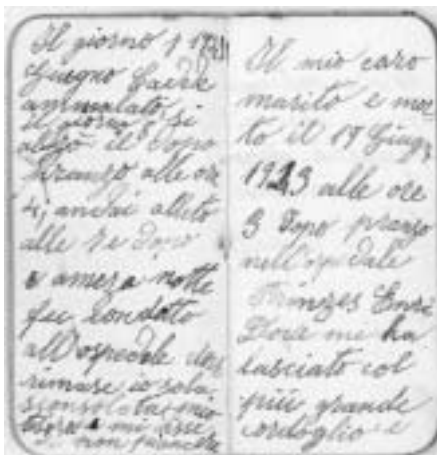 Il giorno 1
Giugno Cadde
ammalato,
il giorno si
alzò il dopo
pranzo alle ore
4; andai alleto
alle 7 e dopo
a amezanotte
fu condotto
all'ospedale
rimase io sola,
sconsolata, mio
mi disse
di non piancere
Il mio caro
marito e mor
to il 17 Giug,
1923 alle ore
3 dopo pranzo
nell'ospedale
Prinzes
me ha
lasciato col
più grande
cordoglio e